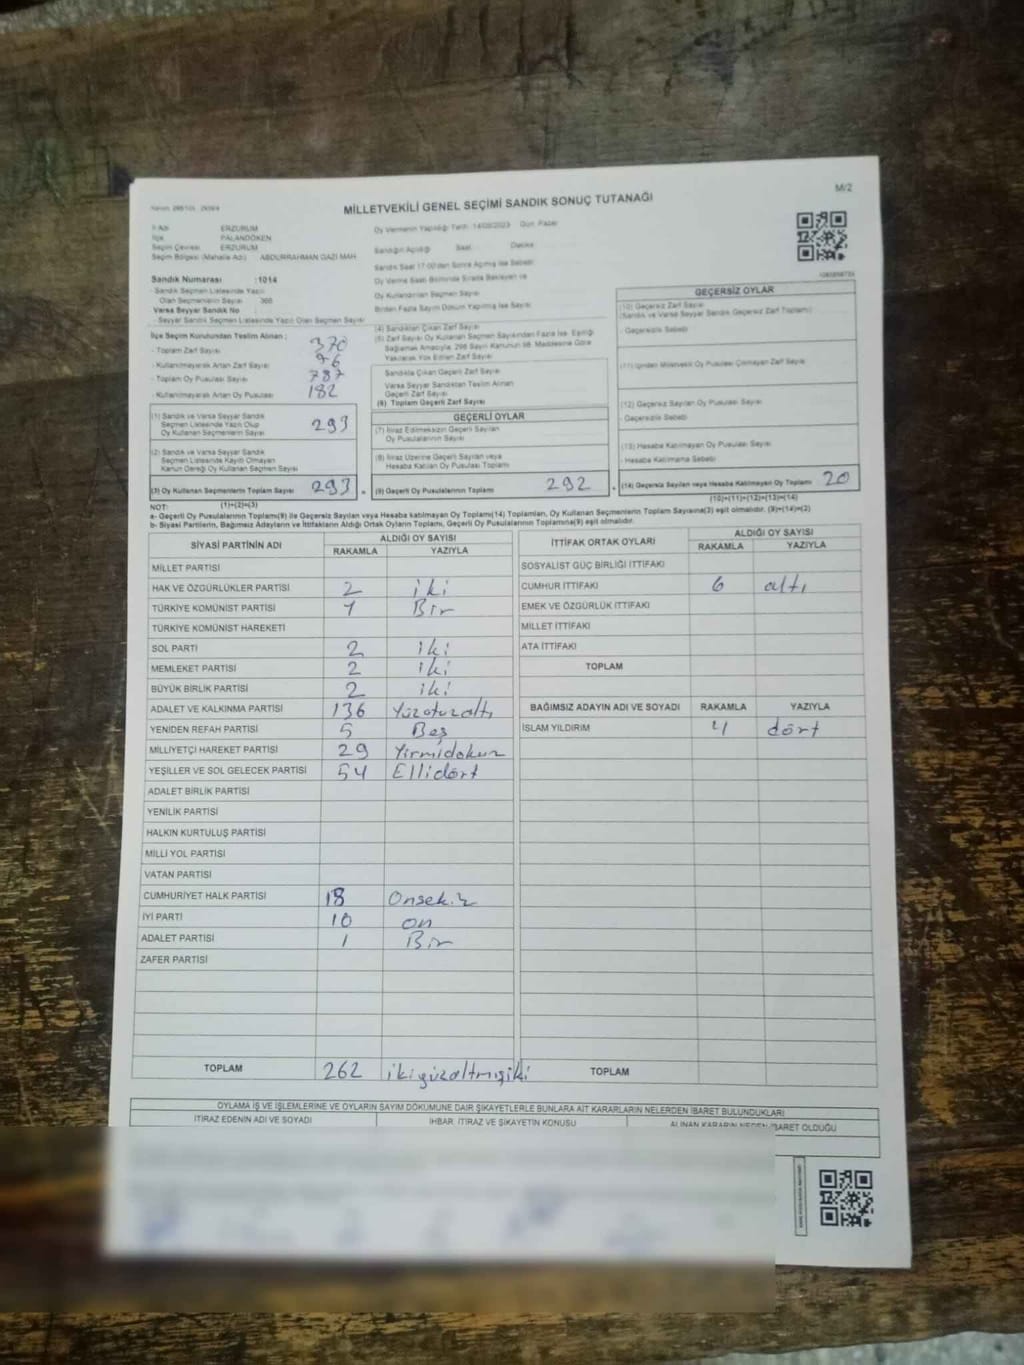 M/2
MİLLETVEKİLİ GENEL SEÇİMİ SANDIK SONUÇ TUTANAĞI
İl Adı ERZURUM
İlçe PALANDÖKEN
Seçim Çevresi ERZURUM
Seçim Bölgesi (Mahalle Adı) ABDURRAHMAN GAZİ MAH
Oy Vermenin Yapıldığı Tarih: 14/05/2023 Gün: Pazar
Sandığın Açıldığı Saat: Dakika:
Sandık Saat 17:00'den Sonra Açılmış İse Sebebi:
Sandık Numarası :1014
- Sandık Seçmen Listesinde Yazılı
Olan Seçmenlerin Sayısı 366
Varsa Seyyar Sandık No
- Seyyar Sandık Seçmen Listesinde Yazılı Olan Seçmen Sayısı
Oy Kullandırılan Seçmen Sayısı
Birden Fazla Sayım Döküm Yapılmış İse Sayısı:
İlçe Seçim Kurulundan Teslim Alınan :
- Toplam Zarf Sayısı 370
- Kullanılmayarak Artan Zarf Sayısı 76
- Toplam Oy Pusulası Sayısı 787
- Kullanılmayarak Artan Oy Pusulası 182
(1) Sandık ve Varsa Seyyar Sandık
Seçmen Listesinde Yazılı Olup
Oy Kullanan Seçmenlerin Sayısı 293
(2) Sandık ve Varsa Seyyar Sandık
Seçmen Listesinde Kayıtlı Olmayan
Kanun Gereği Oy Kullanan Seçmen Sayısı
(3) Oy Kullanan Seçmenlerin Toplam Sayısı 293
(1)+(2)=(3)
(4) Sandıktan Çıkan Zarf Sayısı
(5) Zarf Sayısı Oy Kullanan Seçmen Sayısından Fazla İse, Eşitliği
Sağlamak Amacıyla, 298 Sayılı Kanunun 98. Maddesine Göre
Yakılarak Yok Edilen Zarf Sayısı
Sandıkta Çıkan Geçerli Zarf Sayısı
Varsa Seyyar Sandıktan Teslim Alınan
Geçerli Zarf Sayısı
(6) Toplam Geçerli Zarf Sayısı
GEÇERLİ OYLAR
(7) İtiraz Edilmeksizin Geçerli Sayılan
Oy Pusulalarının Sayısı
(8) İtiraz Üzerine Geçerli Sayılan veya
Hesaba Katılan Oy Pusulası Toplamı
(9) Geçerli Oy Pusulalarının Toplamı 292
GEÇERSİZ OYLAR
(10) Geçersiz Zarf Sayısı
(Sandık ve Varsa Seyyar Sandık Geçersiz Zarf Toplamı)
- Geçersizlik Sebebi
(11) İçinden Milletvekili Oy Pusulası Çıkmayan Zarf Sayısı
(12) Geçersiz Sayılan Oy Pusulası Sayısı
- Geçersizlik Sebebi
(13) Hesaba Katılmayan Oy Pusulası Sayısı
- Hesaba Katılmama Sebebi
(14) Geçersiz Sayılan veya Hesaba Katılmayan Oy Toplamı 20
(10)+(11)+(12)+(13)=(14)
NOT:
a- Geçerli Oy Pusulalarının Toplamı(9) ile Geçersiz Sayılan veya Hesaba katılmayan Oy Toplamı(14) Toplamları, Oy Kullanan Seçmenlerin Toplam Sayısına(3) eşit olmalıdır. (9)+(14)=(3)
b- Siyasi Partilerin, Bağımsız Adayların ve İttifakların Aldığı Ortak Oyların Toplamı, Geçerli Oy Pusulalarının Toplamına(9) eşit olmalıdır.
SİYASİ PARTİNİN ADI ALDIĞI OY SAYISI
RAKAMLA YAZIYLA
MİLLET PARTİSİ
HAK VE ÖZGÜRLÜKLER PARTİSİ 2 iki
TÜRKİYE KOMÜNİST PARTİSİ 1 Bir
TÜRKİYE KOMÜNİST HAREKETİ
SOL PARTİ 2 iki
MEMLEKET PARTİSİ 2 iki
BÜYÜK BİRLİK PARTİSİ 2 iki
ADALET VE KALKINMA PARTİSİ 136 Yüzotuzaltı
YENİDEN REFAH PARTİSİ 5 Beş
MİLLİYETÇİ HAREKET PARTİSİ 29 Yirmidokuz
YEŞİLLER VE SOL GELECEK PARTİSİ 54 Ellidört
ADALET BİRLİK PARTİSİ
YENİLİK PARTİSİ
HALKIN KURTULUŞ PARTİSİ
MİLLİ YOL PARTİSİ
VATAN PARTİSİ
CUMHURİYET HALK PARTİSİ 18 Onsekiz
İYİ PARTİ 10 on
ADALET PARTİSİ 1 Bir
ZAFER PARTİSİ
TOPLAM 262 ikiyüzaltmışiki
İTTİFAK ORTAK OYLARI ALDIĞI OY SAYISI
RAKAMLA YAZIYLA
SOSYALİST GÜÇ BİRLİĞİ İTTİFAKI
CUMHUR İTTİFAKI 6 altı
EMEK VE ÖZGÜRLÜK İTTİFAKI
MİLLET İTTİFAKI
ATA İTTİFAKI
TOPLAM
BAĞIMSIZ ADAYIN ADI VE SOYADI RAKAMLA YAZIYLA
İSLAM YILDIRIM 4 dört
TOPLAM
OYLAMA İŞ VE İŞLEMLERİNE VE OYLARIN SAYIM DÖKÜMÜNE DAİR ŞİKAYETLERLE BUNLARA AİT KARARLARIN NELERDEN İBARET BULUNDUKLARI
İTİRAZ EDENİN ADI VE SOYADI İHBAR, İTİRAZ VE ŞİKAYETİN KONUSU ALINAN KARARIN NEDEN İBARET OLDUĞU